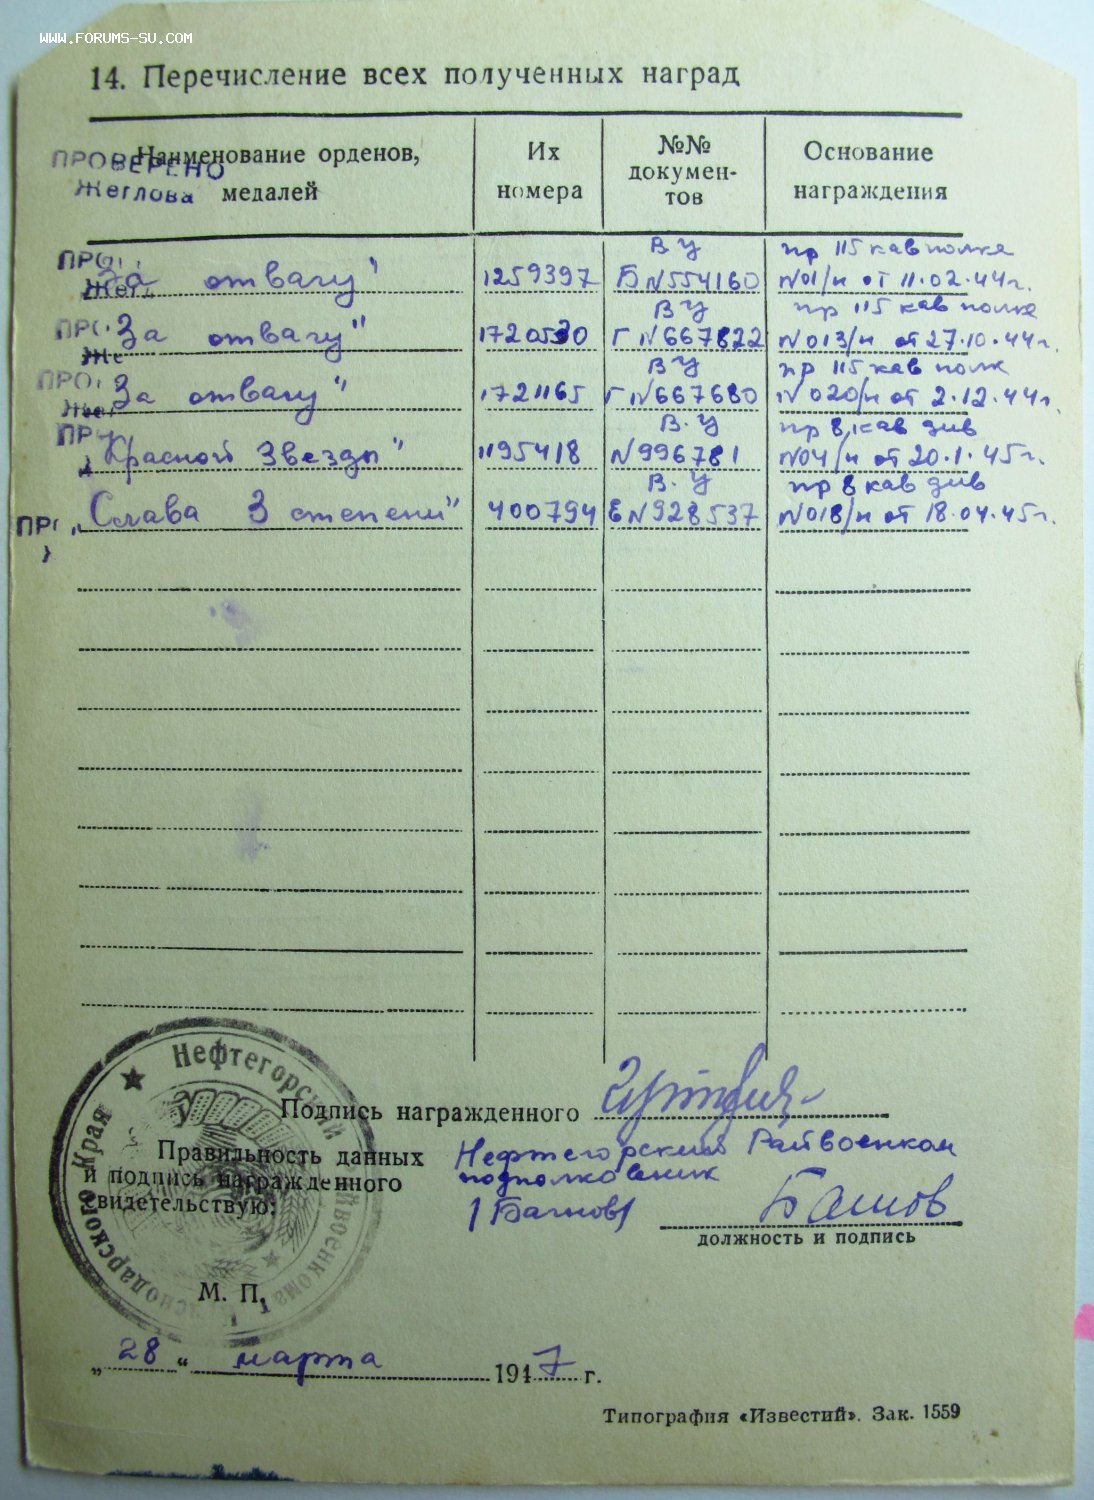 WWW.FORUMS-SU.COM
14. Перечисление всех полученных наград
ПРОВЕРЕНО
Жеглова
Наименование орденов, медалей
Их номера
№№ докумен-тов
Основание награждения
ПРО
Жег
За отвагу"
1259397
В У
Б N 554160
пр 115 кав полка
N 01/н от 11.02.44г.
ПРО
Же
За отвагу"
1720530
В У
Г N 667822
пр 115 кав полка
N 013/н от 27.10.44г.
ПРО
Жег
За отвагу"
1721165
В У
Г N 667680
пр 115 кав полк
N 020/н от 2.12.44г.
ПРО
„Красной Звезды"
1195418
В. У
N 996781
пр 8 кав див
N 04/н от 20.1.45г.
ПРО
„Слава 3 степени"
400794
В. У
Е N 928537
пр 8 кав див
N 018/н от 18.04.45г.
Нефтегорский
Краснодарского Края
Подпись награжденного
Правильность данных
и подпись награжденного
свидетельствую:
Нефтегорский Райвоенком
подполковник
должность и подпись
М. П.
„28" марта 1947 г.
Типография «Известий». Зак. 1559